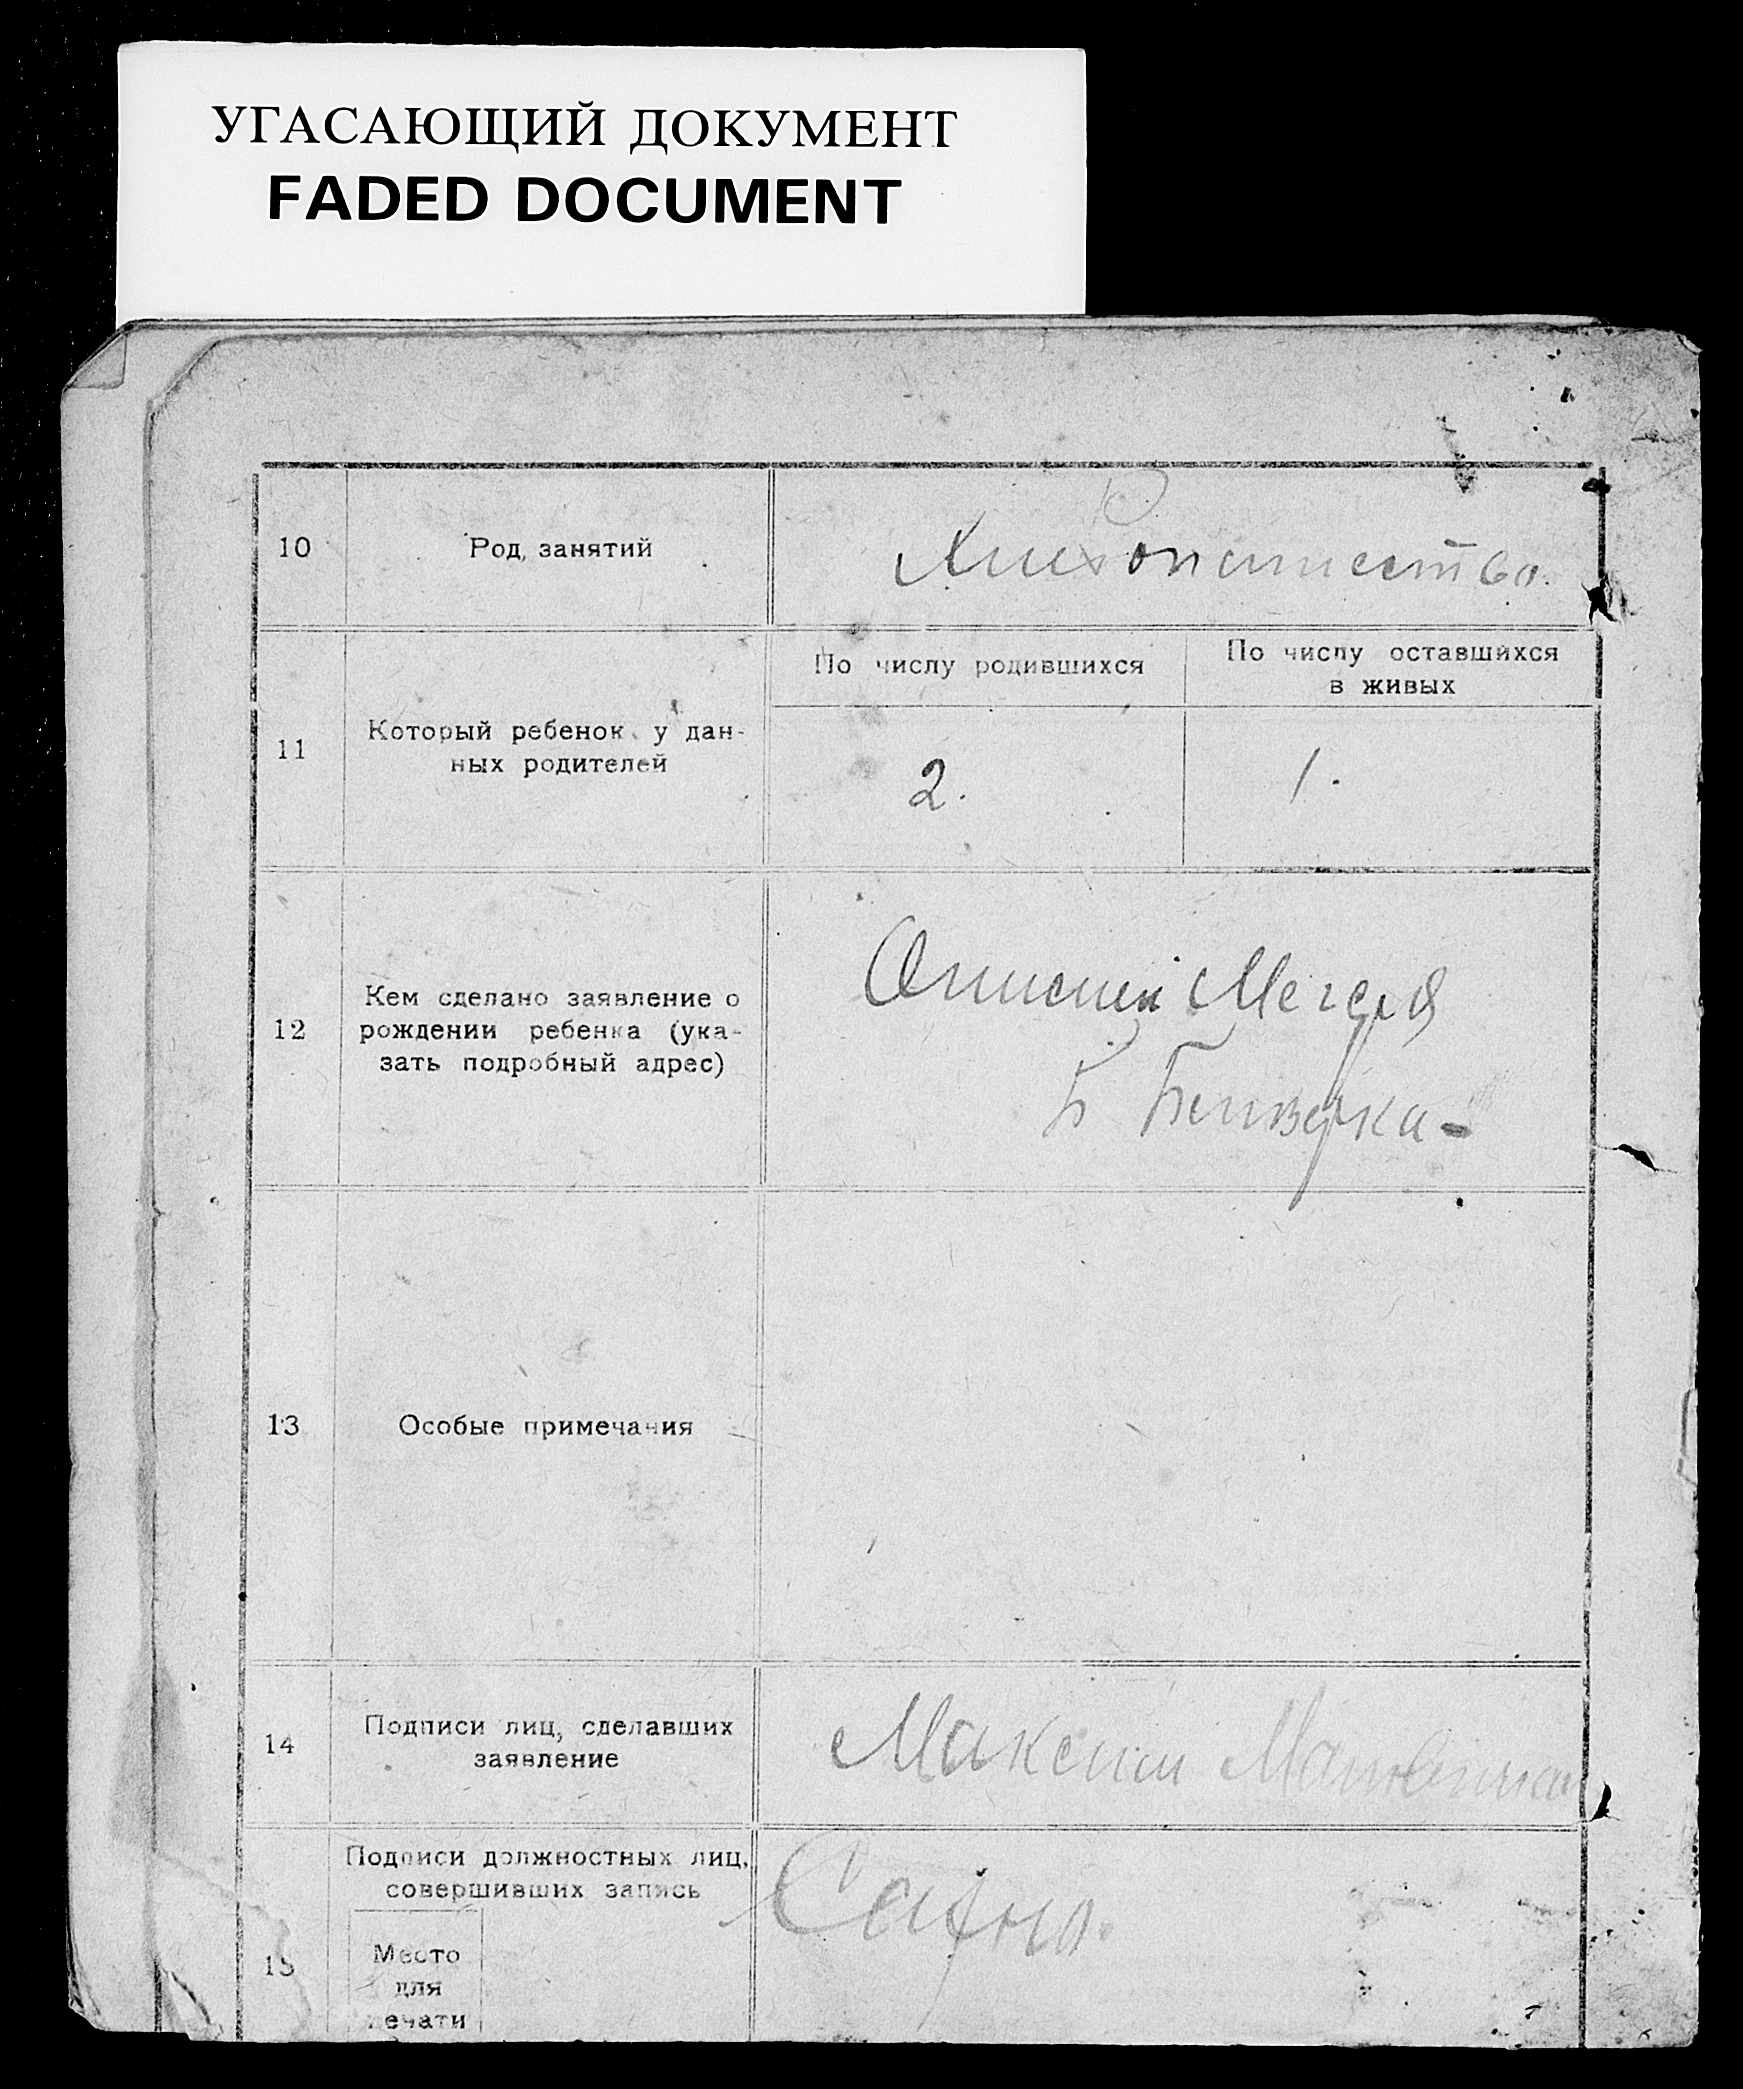 УГАСАЮЩИЙ ДОКУМЕНТ
FADED DOCUMENT
10
Род занятий
Хлебопашество.
11
Который ребенок у дан-
ных родителей
По числу родившихся
По числу оставшихся
в живых
2.
1.
12
Кем сделано заявление о
рождении ребенка (ука-
зать подробный адрес)
Б
13
Особые примечания
14
Подписи лиц, сделавших
заявление
Максим
15
Подписи должностных лиц,
совершивших запись
Место
для
печати